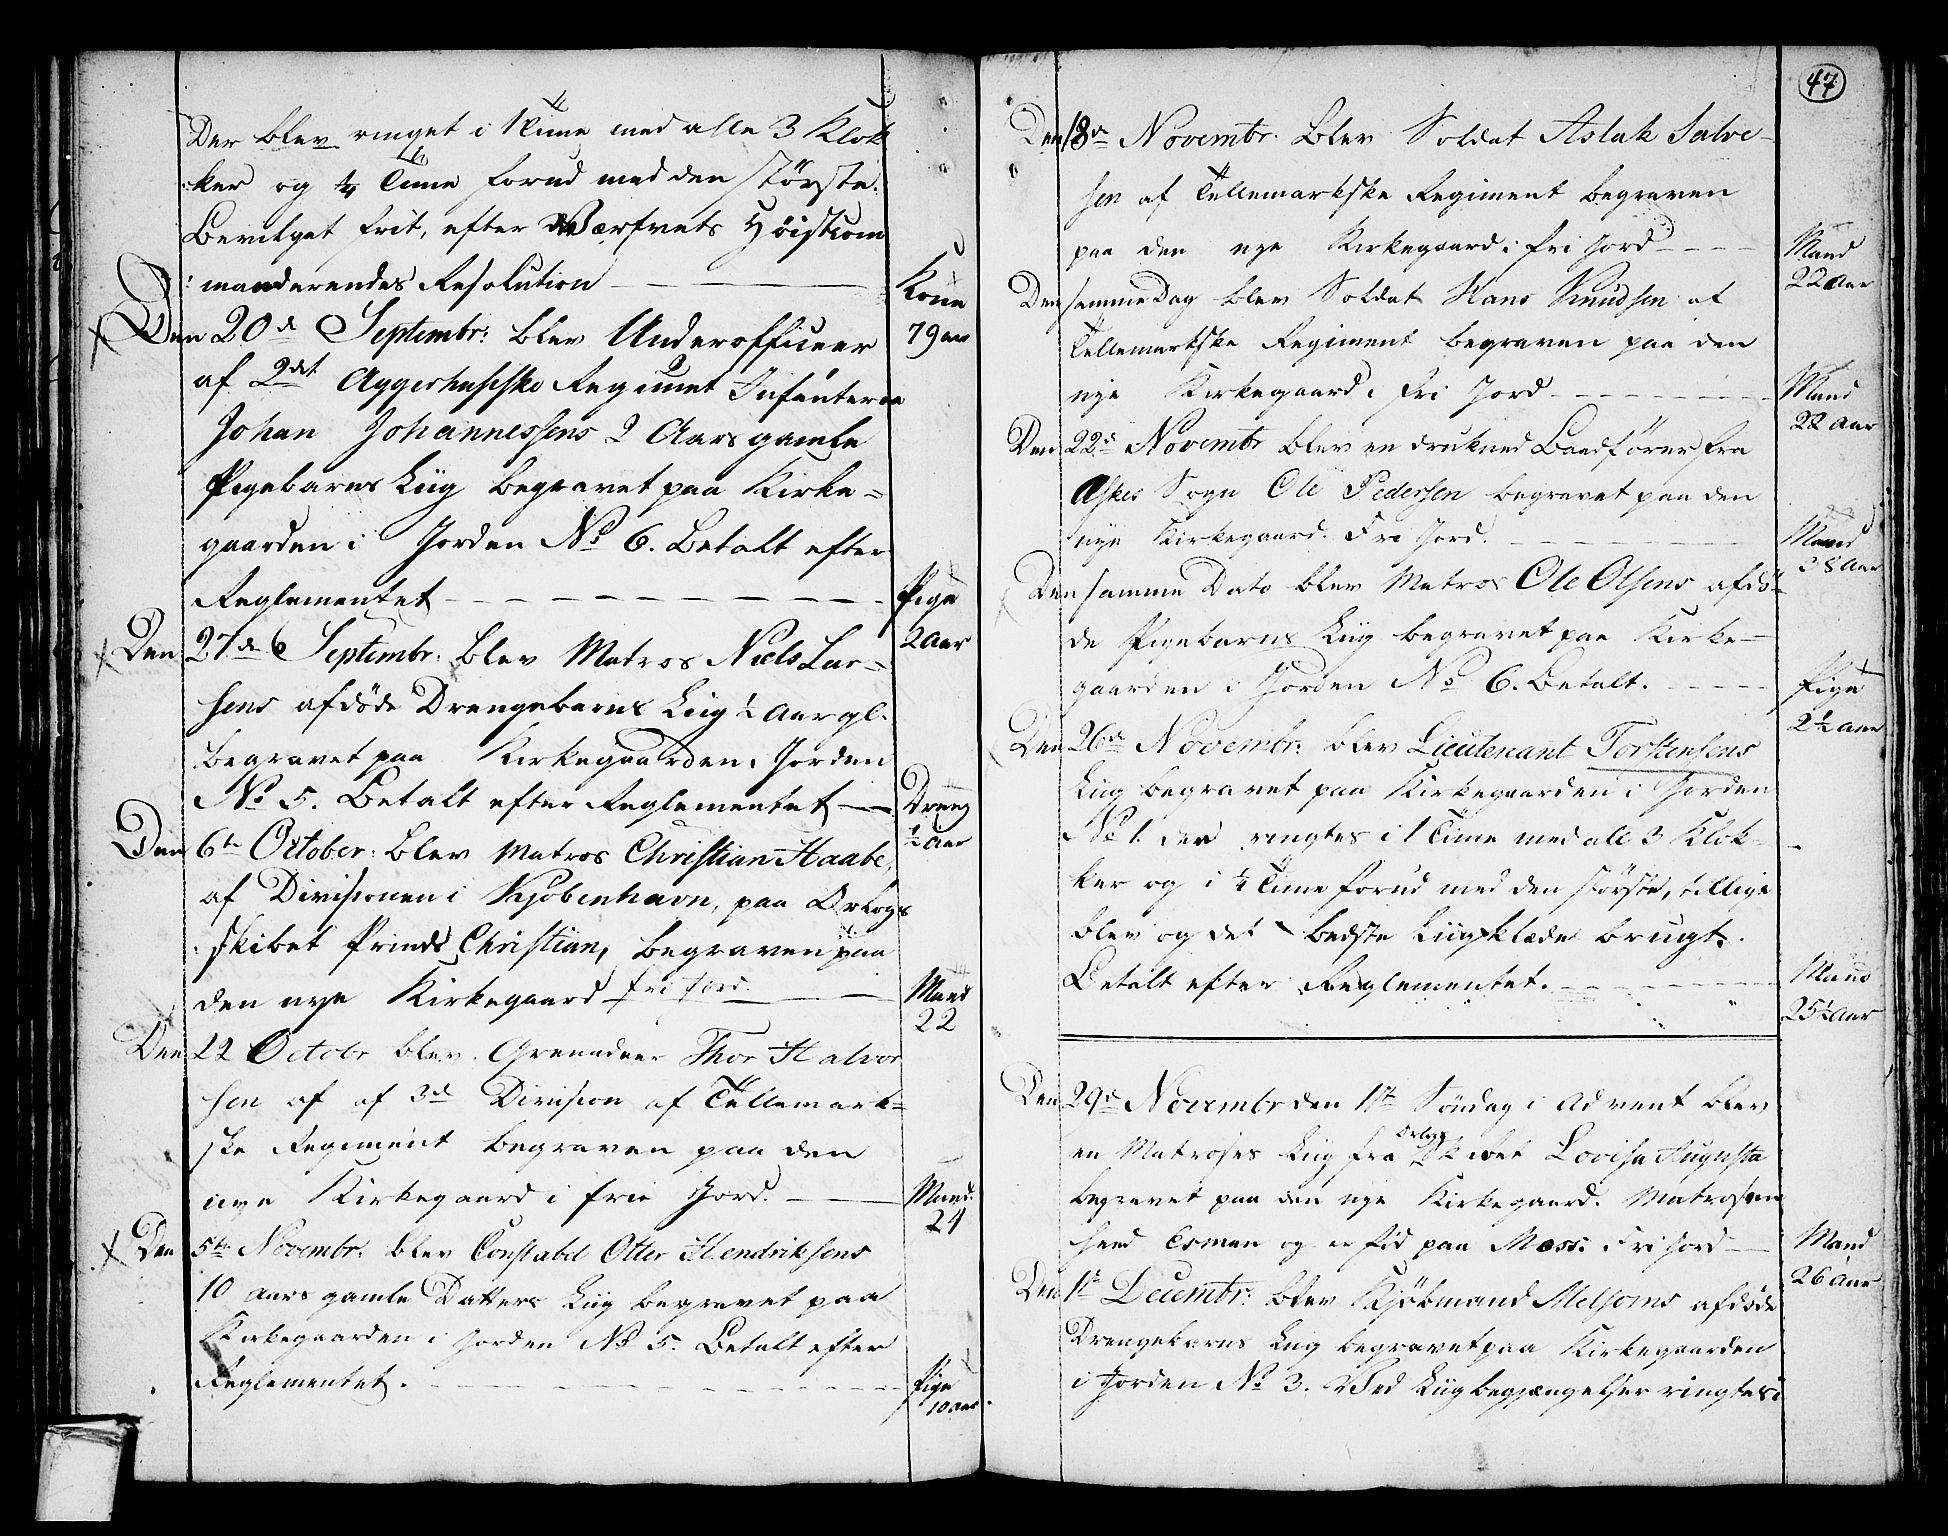 Der blev ringet i 1 Time med alle 3 Klok
ker og ¼ Time forud med den største.
Bevilget frit, efter Værfvets Høistcom
manderendes Resolution
Kone
79 aar
Den 20de Septembr: blev Underofficeer
af 2det Aggershusiske Regiment Infanterie
Johan Johannessens 2 Aars gamle
Pigebarns Liig begravet paa Kirke=
gaarden i Jorden No 6. Betalt efter
Reglementet
Pige
2 Aar
Den 27de Septembr. blev Matros Niels Lar-
sens afdøde Drengebarns Liig ½ Aar gl.
begravet paa Kirkegaarden i Jorden
No 5. Betalt efter Reglementet
Dreng
½ Aar
Den 6te October: blev Matros Christian Haabe,
af Divisionen i Kjøbenhavn, paa Orlogs
skibet Prinds Christian, begraven paa
den nye Kirkegaard fri Jord.
Mand
22
Den 22 Octobr blev Grenadeer Thor Halvor
sen af af 3de Division af Tellemark=
ske Regiment begraven paa den
nye Kirkegaard i frie Jord.
Mand
24
Den 5te Novembr: blev Constabel Otter Hendriksens
10 aars gamle Datters Liig begravet paa
Kirkegaarden i Jorden No 5. Betalt efter
Reglementet.
Pige
10 Aar.
47
Den 18de Novembr: blev Soldat Aslak Salve-
sen af Tellemarkske Regiment begraven
paa den nye Kirkegaard i fri Jord
Mand
22 Aar
Den samme Dag blev Soldat Hans Knudsen af
Tellemarkske Regiment begraven paa den
nye Kirkegaard i fri Jord
Mand
22 Aar
Den 22de Novembr blev en drukned Baadfører fra
Askers Sogn Ole Pedersen begravet paa den
nye Kirkegaard. Fri Jord.
Mand
Aar
Den samme Dato blev Matros Ole Olsens afdø-
de Pigebarns Liig begravet paa Kirke-
gaarden i Jorden No 6. Betalt.
Pige
2½ Aar
Den 26de Novembr: blev Lieutenant Torstensens
Liig begravet paa Kirkegaarden i Jorden
No 1. der ringtes i 1 Time med all 3 Klok-
ker og i ¼ Time forud med den største, tillige
blev og det bedste Liigklæde brugt.
Betalt efter Reglementet.
Mand
25½ Aar
Den 29de Novembr den 1ste Søndag i Advent blev
en Matroses Liig fra Orlogs Skibet Lovisa Augusta
begravet paa den nye Kirkegaard. Matrosen
heed Esman og er fød paa Moss. Fri Jord
Mand
26 Aar
Den 1ste Decembr: blev Kjøbmand Melsoms afdøde
Drengebarns Liig begravet paa Kirkegaarden
i Jorden No 3. Ved Liigbegjængelser ringtes i